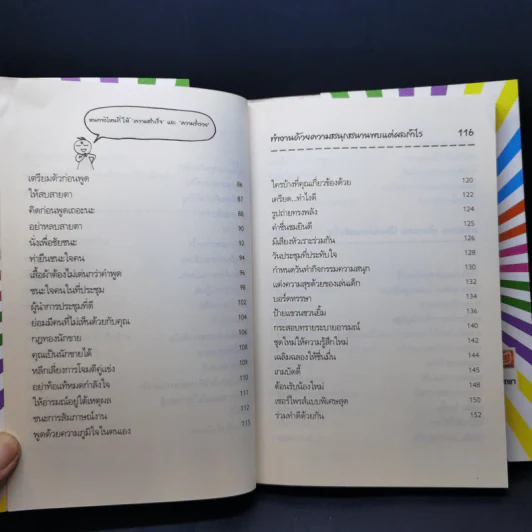 เตรียมตัวก่อนพูด 86
ให้สบสายตา 87
คิดก่อนพูดเถอะนะ 88
อย่าหลบสายตา 90
นั่งเพื่อชัยชนะ 92
ท่ายืนชนะใจคน 94
เสื้อผ้าต้องไม่เด่นกว่าคำพูด 96
ชนะใจคนในที่ประชุม 98
ผู้นำการประชุมที่ดี 102
ย่อมมีคนที่ไม่เห็นด้วยกับคุณ 104
กฎทองนักขาย 106
คุณเป็นนักขายได้ 108
หลีกเลี่ยงการโจมตีคู่แข่ง 109
อย่าท้อแท้หมดกำลังใจ 110
ให้อารมณ์อยู่ใต้เหตุผล 111
ชนะการสัมภาษณ์งาน 112
พูดด้วยความภูมิใจในตนเอง 113
ทำงานด้วยความสนุกสนานพบแต่ผลกำไร 116
ใครบ้างที่คุณเกี่ยวข้องด้วย 120
เครียด...ทำไงดี 122
รูปถ่ายทรงพลัง 124
คำชื่นชมยินดี 125
มีเสียงหัวเราะร่วมกัน 126
วันประชุมที่ประทับใจ 128
กำหนดวันทำกิจกรรมความสนุก 130
แต่งความสุขด้วยของเล่นเด็ก 132
บอร์ดหรรษา 134
ป้ายแขวนชวนยิ้ม 136
กระสอบทรายระบายอารมณ์ 140
ชุดใหม่ให้ความรู้สึกใหม่ 142
เฉลิมฉลองให้ชื่นมื่น 144
เกมบัดดี้ 145
ต้อนรับน้องใหม่ 148
เซอร์ไพรส์แบบพิเศษสุด 150
ร่วมทำดีด้วยกัน 152